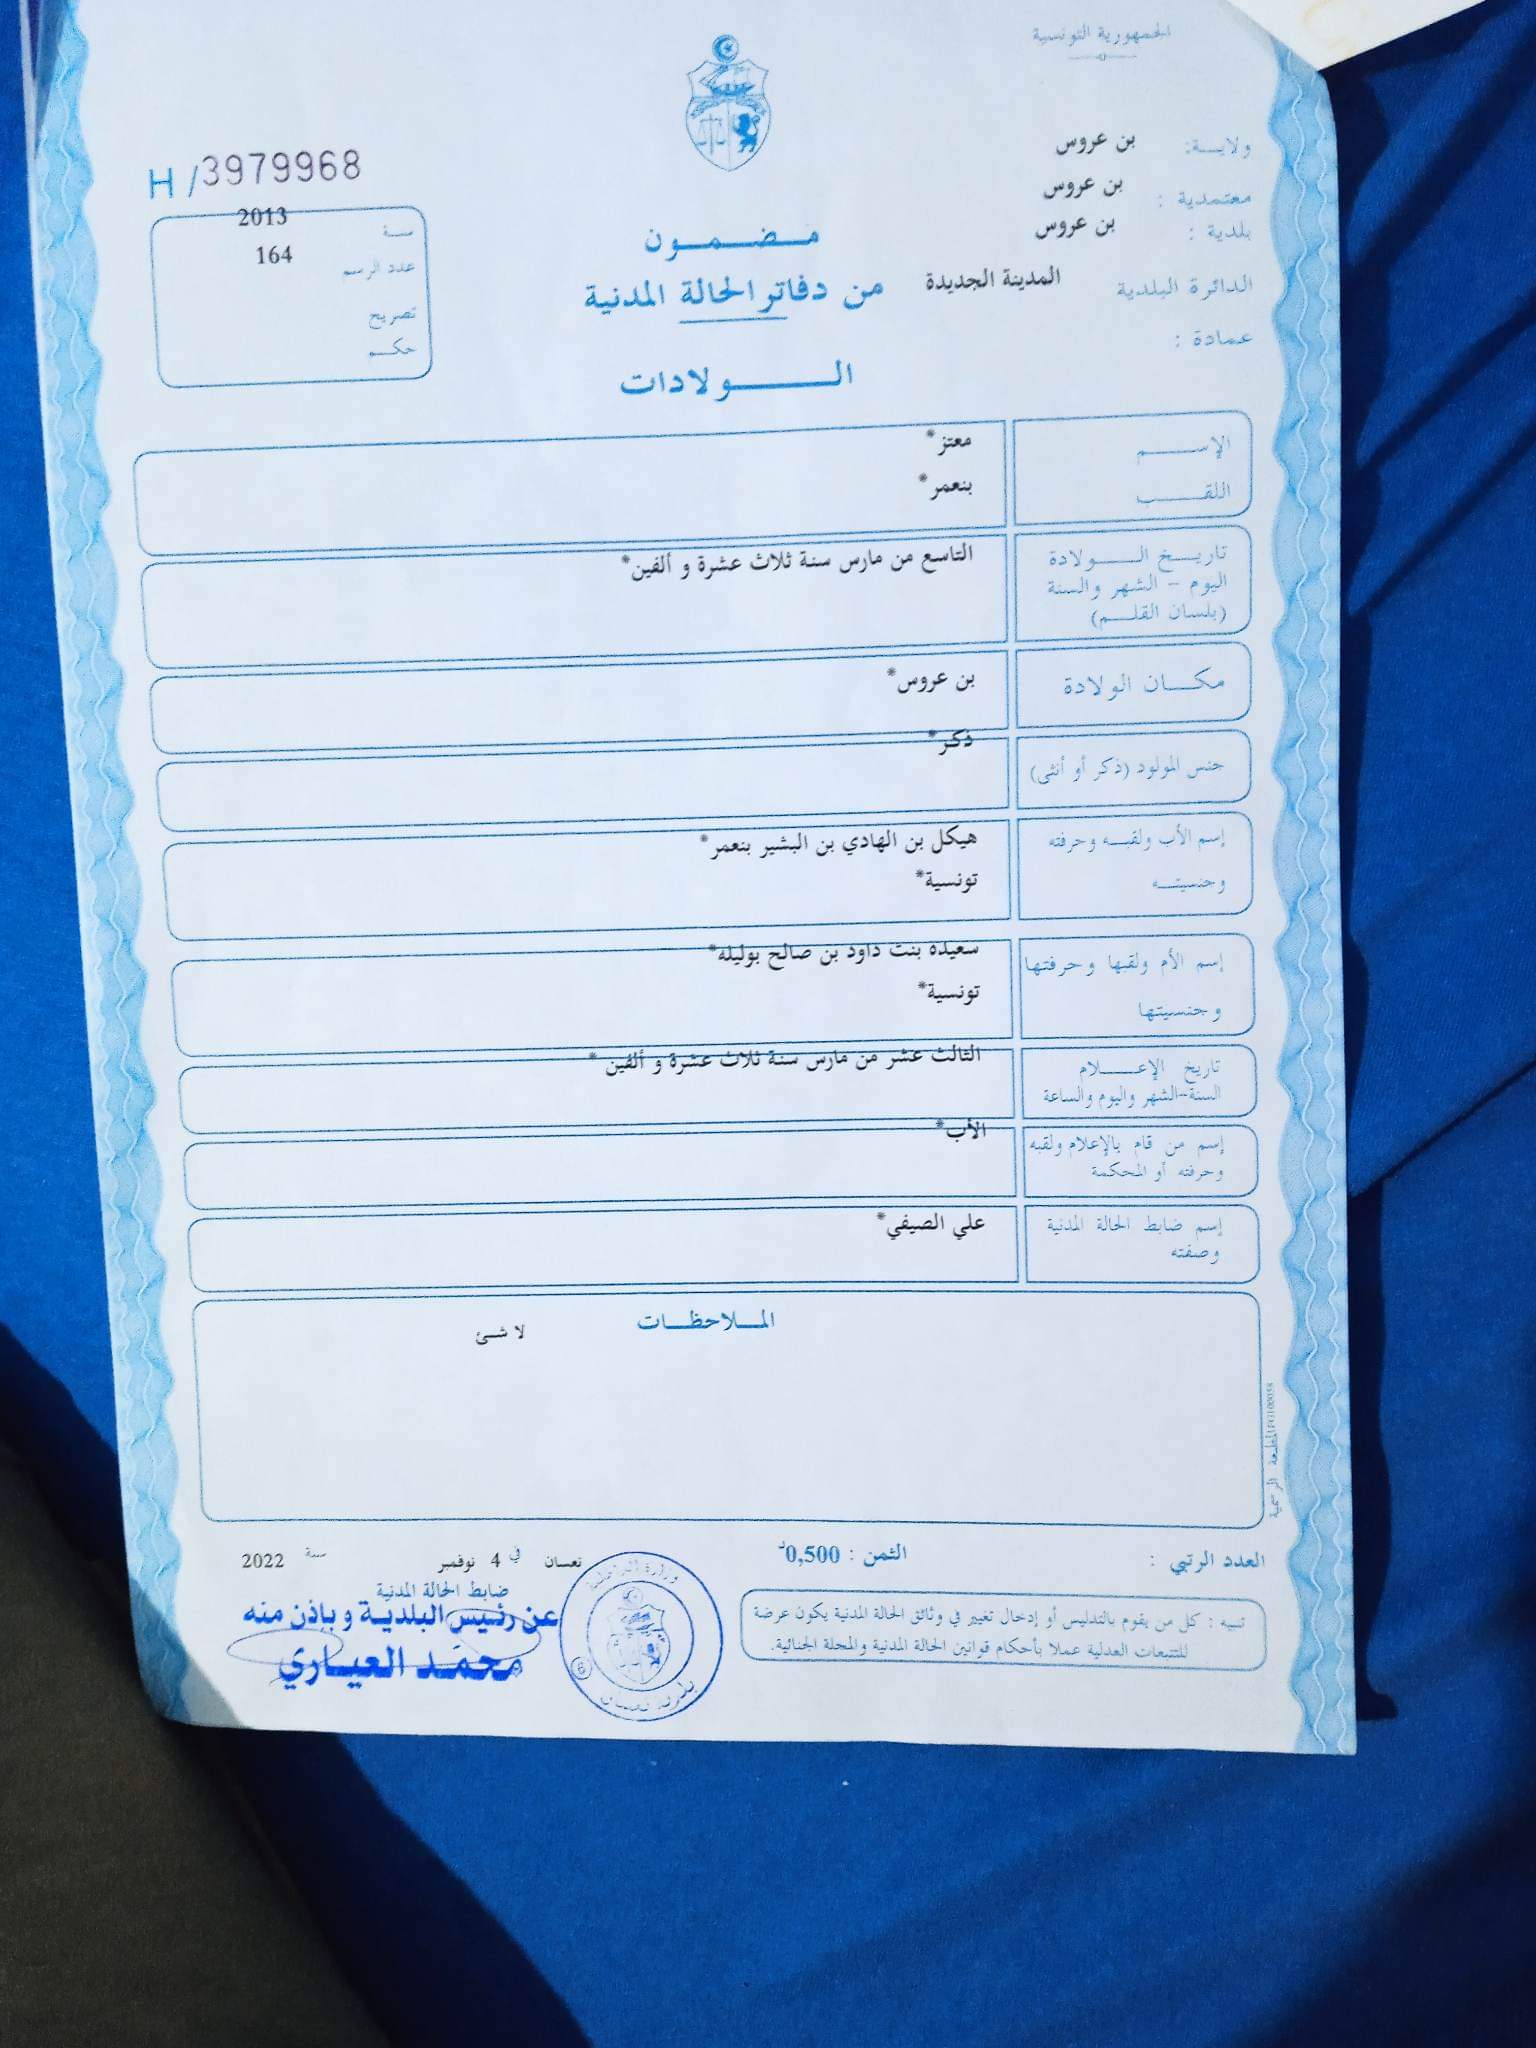 الجمهورية التونسية
ولايــة: بن عروس
معتمدية : بن عروس
بلدية : بن عروس
الدائرة البلدية المدينة الجديدة
عمادة :
H / 3979968
سنة 2013
عدد الرسم 164
تصريح
حكم
مضمون
من دفاتر الحالة المدنية
الولادات
الإسم معتز*
اللقب بنعمر*
تاريخ الولادة
اليوم - الشهر والسنة
(بلسان القلم)
التاسع من مارس سنة ثلاث عشرة و ألفين*
مكان الولادة بن عروس*
جنس المولود (ذكر أو أنثى) ذكر*
إسم الأب ولقبه وحرفته هيكل بن الهادي بن البشير بنعمر*
وجنسيته تونسية*
إسم الأم ولقبها وحرفتها سعيده بنت داود بن صالح بوليله*
وجنسيتها تونسية*
تاريخ الإعلام الثالث عشر من مارس سنة ثلاث عشرة و ألفين *
السنة-الشهر واليوم والساعة
إسم من قام بالإعلام ولقبه الأب*
وحرفته أو المحكمة
إسم ضابط الحالة المدنية علي الصيفي*
وصفته
الملاحظات
لا شئ
العدد الرتبي :
الثمن : 0,500د
نعسان في 4 نوفمبر سنة 2022
ضابط الحالة المدنية
عن رئيس البلدية وبإذن منه
محمد العياري
تنبيه : كل من يقوم بالتدليس أو إدخال تغيير في وثائق الحالة المدنية يكون عرضة
للتتبعات العدلية عملا بأحكام قوانين الحالة المدنية والمجلة الجنائية.
المطبعة الرسمية